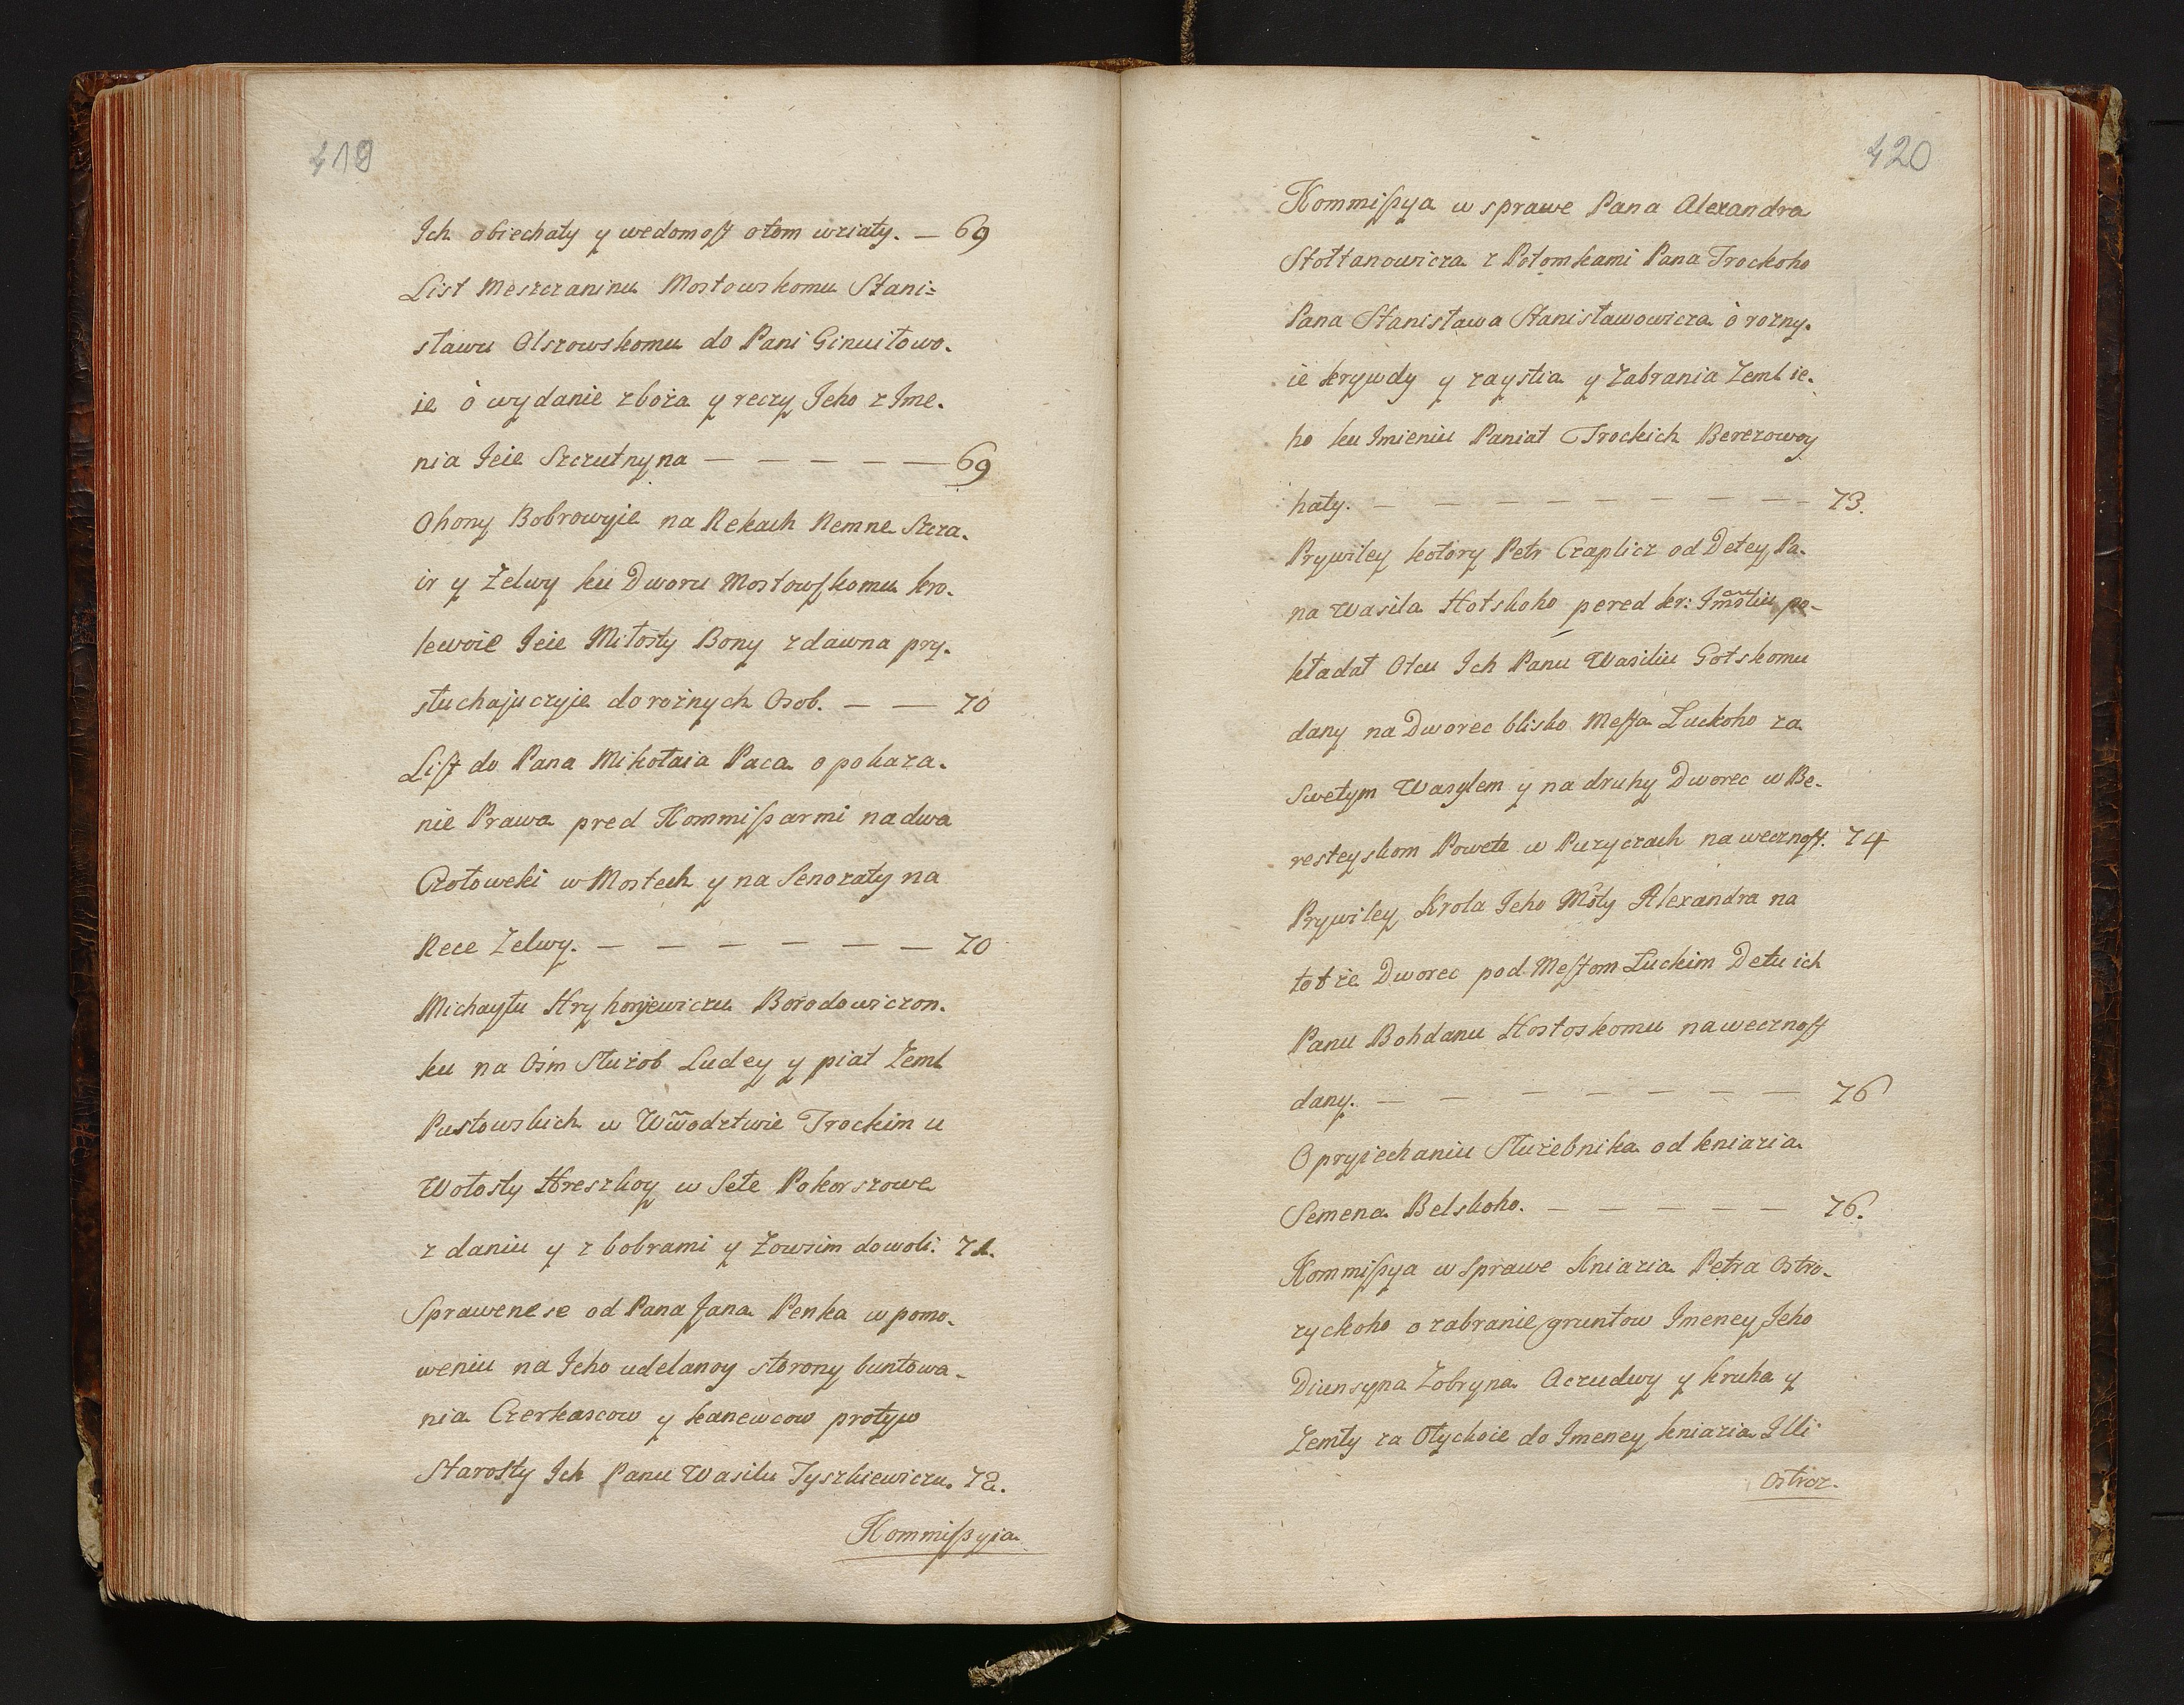 419
Ich obiechały y wedomosť otom wziały. — 69
List Meszczaninu Mostowskomu Stani=
sławu Olszowskomu do Pani Ginuitowo-
ie ò wydanie zboża y reczy Jeho z Ime-
nia Jeie Szczutnyna — — — — — 69
Ohony Bobrowyie na Rekach Remne Szcza-
ir y Zelwy ku Dworu Mostowskomu kro-
lewoie Jeie Miłosty Bony zdawna pry-
słuchajuczyie do rożnych Osob. — — 70
List do Pana Mikołaia Paca o pokaza-
nie Prawa pred Kommissarmi na dwa
Czołoweki w Mostech y na Senozaty na
Rece Zelwy. — — — — — — 70
Michayłu Hryhorjewiczu Borodowiczon-
ku na Ośm Służob Ludey y piat Zeml
Pustowskich w Wwodztwie Trockim u
Wołosty Hreszkoy w Sele Pokorszowe
z daniu y z bobrami y Zowsim dowoli. 71.
Sprawenese od Pana Jana Penka w pomo-
weniu na Jeho udelanoy storony buntowa-
nia Czerkascow y kanewcow protyw
Starosty Ich Panu Wasilu Tyszkiewiczu. 72.
Kommissyia
420
Kommissya w sprawe Pana Alexandra
Stołtanowicza z Potomkami Pana Trockoho
Pana Stanisława Stanisławowicza ò rozny-
ie krywdy y zaystia y Zabrania Zemlie-
ho ku Imieniu Paniat Trockich Berezowoy
haty. — — — — — — — — 73.
Prywiley kotory Petr Czaplicz od Detey Pa-
na Wasila Hotskoho pered kr: Jmostiu po-
kładał Otcu Ich Panu Wasiliu Gotskomu
dany na Dworec blisko Mesta Łuckoho za
Swetym Wasylem y na druhy Dworec w Be-
resteyskom Powete w Puzyczach na wecznost. 74
Prywiley Krola Jeho Mosty Alexandra na
totże Dworec pod Mestom Łuckim Detu ich
Panu Bohdanu Hostoskomu na wecznost
dany. — — — — — — — 76
O pryiechaniu Służebnika od kniazia
Semena Belskoho. — — — — — 76.
Kommissya w Sprawe Kniazia Petra Ostro-
zyckoho o zabranie gruntow Imeney Jeho
Diunsyna Zobryna Aczudwy y kruha y
Zemly za Otyckoie do Imeney kniazia Illi
Ostroz.